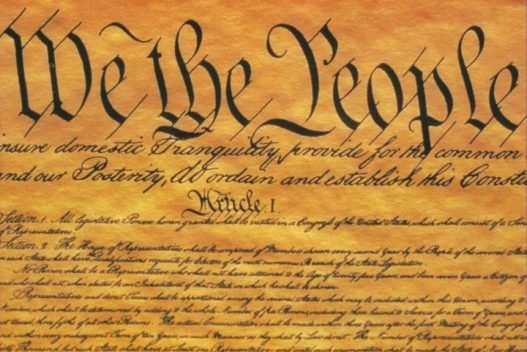 We the People
insure domestic Tranquility, provide for the common
and our Posterity, do ordain and establish this Consti
Article I
Section 1. All legislative Powers herein granted shall be vested in a Congress of the United States, which shall consist of a Se
of Representatives
Section 2. The House of Representatives shall be composed of Members chosen every second Year by the People of the several States
in each State shall have the Qualifications requisite for Electors of the most numerous Branch of the State Legislature.
No Person shall be a Representative who shall not have attained to the Age of twenty five Years, and been seven Years a Citizen
and who shall not, when elected, be an Inhabitant of that State in which he shall be chosen.
Representatives and direct Taxes shall be apportioned among the several States which may be included within this Union, according to
Numbers, which shall be determined by adding to the whole Number of free Persons, including those bound to Service for a Term of Years, and
three fifths of all other Persons. The actual Enumeration shall be made within three Years after the first Meeting of the Congress
and within every subsequent Term of ten Years, in such Manner as they shall by Law direct. The Number of Representatives shall not
but each State shall have at Least one Representative; and until such